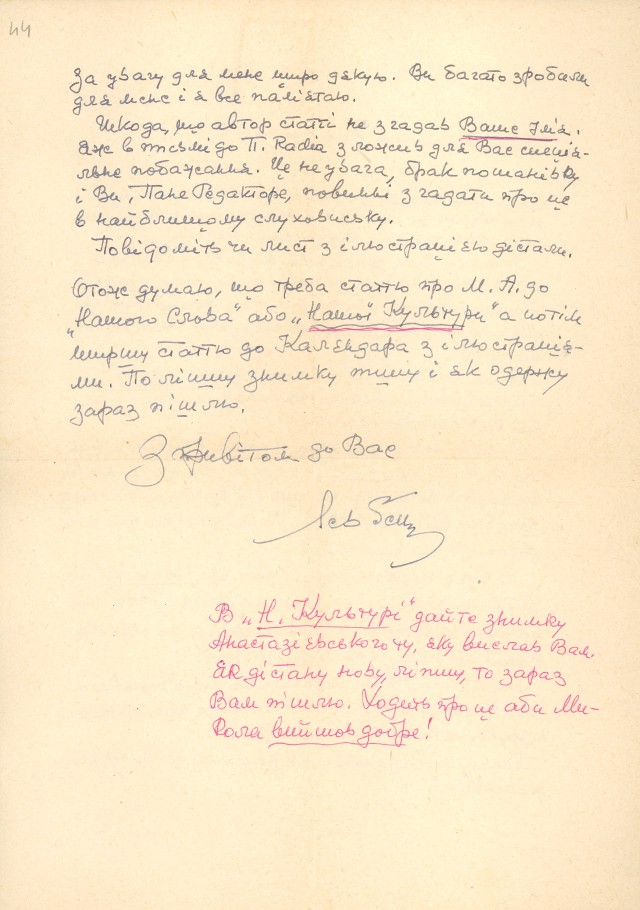 44
За увагу для мене щиро дякую. Ви багато зробили
для мене і я все памʼятаю.
Шкода, що автор статті не згадав Ваше Імʼя.
Аж в письмі до П. Radia зложив для Вас спеціа-
льне побажання. Це не увага, брак пошанівку
і Ви, Пане Редакторе, повинні згадати про це
в найблищому слуховиську.
Повідоміть чи лист з ілюстрацією дістали.
Отож думаю, що треба статтю про М. А. до
"Нашого Слова" або "Нашої Культури" а потім
ширшу статтю до Календара з ілюстрація-
ми. По ліпшу знимку пишу і як одержу
зараз пішлю.
З Привітом до Вас
Лесь
В "Н. Культурі" дайте знимку
Анастазієвського ту, яку вислав Вам
Як дістану нову, ліпшу, то зараз
Вам пішлю. Ходить про це аби Ми-
кола вийшов добре!